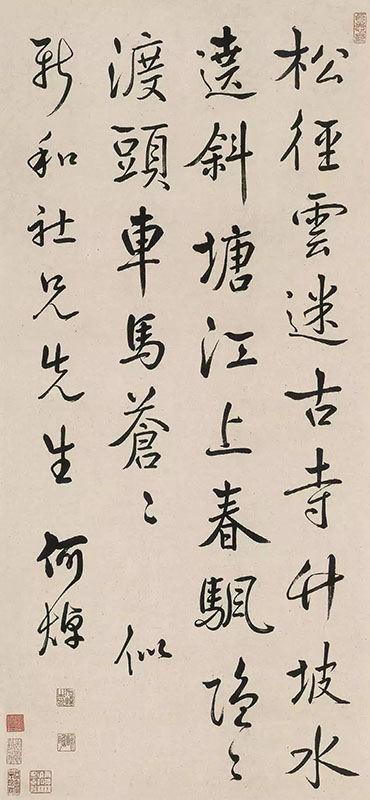 松徑雲迷古寺竹坡水
遶斜塘江上春颿隱〻
渡頭車馬蒼〻 似
新和社兄先生 何焯